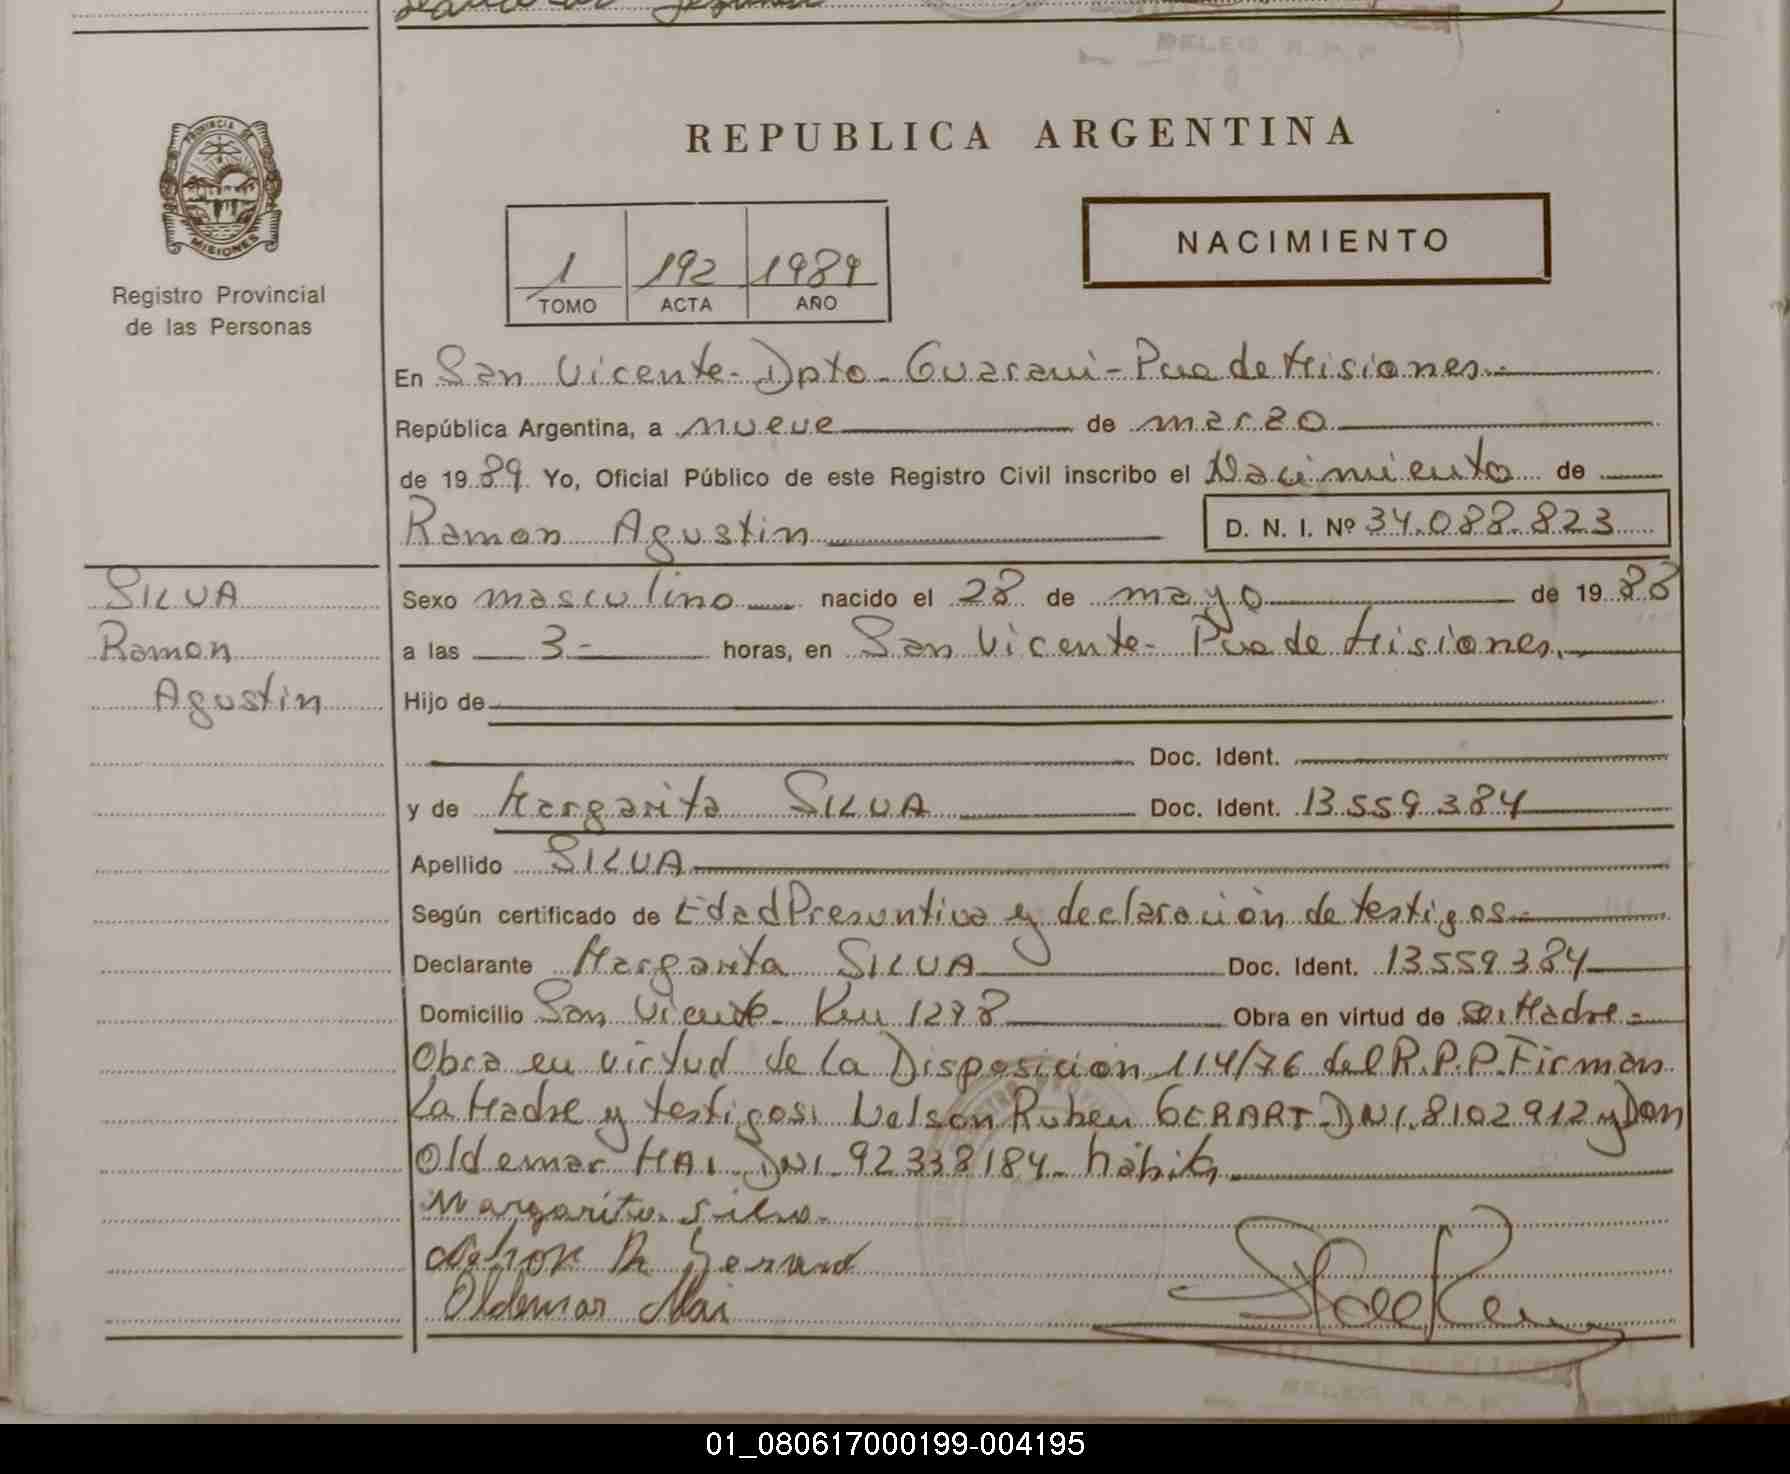 PROVINCIA DE
MISIONES
Registro Provincial
de las Personas
REPUBLICA ARGENTINA
1 192 1989
TOMO ACTA AÑO
NACIMIENTO
En San Vicente - Dpto - Guarani - Pcia de Misiones.-
República Argentina, a nueve de marzo
de 1989 Yo, Oficial Público de este Registro Civil inscribo el Nacimiento de
Ramon Agustin D. N. I. Nº 34.088.823
SILVA
Ramon
Agustin
Sexo masculino nacido el 28 de mayo de 1988
a las 3- horas, en San Vicente - Pcia de Misiones.
Hijo de
Doc. Ident.
y de Margarita SILVA Doc. Ident. 13.559.384
Apellido SILVA
Según certificado de Edad Presuntiva y declaración de testigos.-
Declarante Margarita SILVA Doc. Ident. 13.559.384
Domicilio San Vicente - Km 1278 Obra en virtud de ser Madre -
Obra en virtud de la Disposición 114/76 del R.P.P. Firman
La Madre y testigos: Nelson Ruben GERART - DNI. 8102912 y Don
Oldemar MAI DNI 92338184 - habil
Margarita Silva
Nelson R
Oldemar Mai
DELEG. R.P.P.
01_080617000199-004195